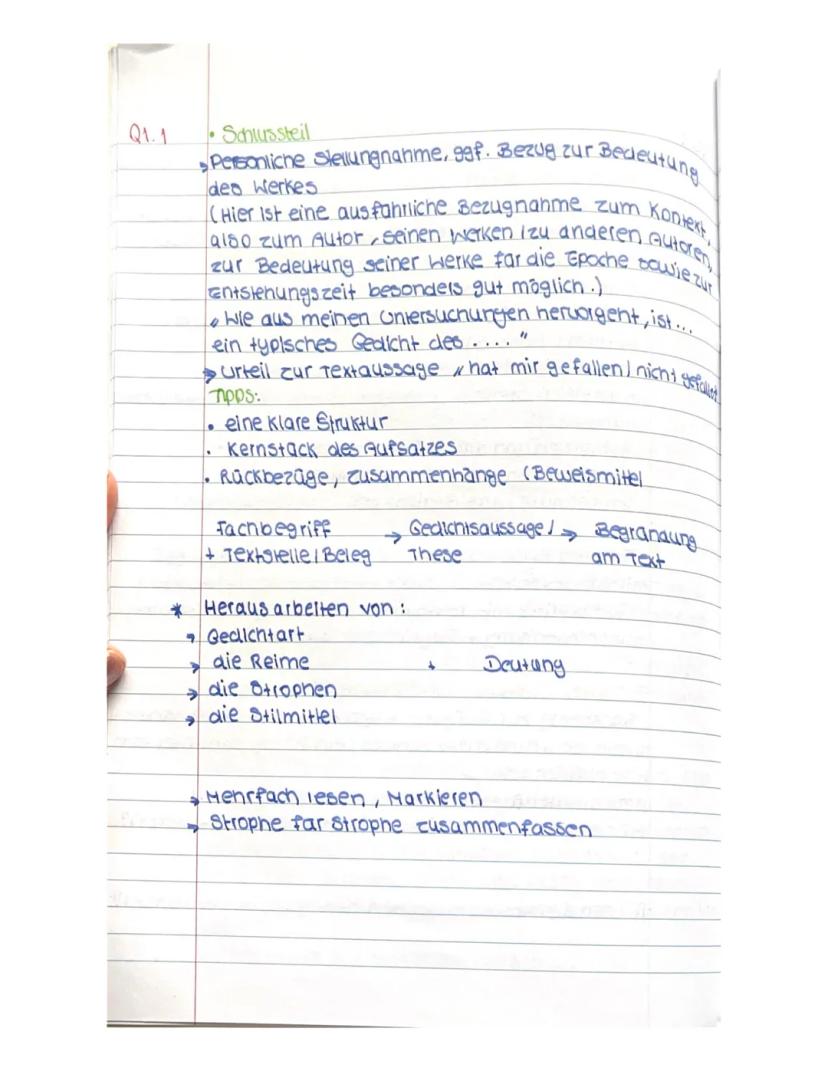 Q1.1 • Schlussteil
→ Persönliche Stellungnahme, ggf. Bezug zur Bedeutung
des Werkes
(Hier ist eine ausführliche Bezugnahme zum Kontext,
also zum Autor, seinen Werken / zu anderen Autoren,
zur Bedeutung seiner Werke für die Epoche sowie zur
Entstehungszeit besonders gut möglich.)
„Wie aus meinen Untersuchungen hervorgeht, ist ...
ein typisches Gedicht des ...."
→ Urteil zur Textaussage „hat mir gefallen / nicht gefallen
Tipps:
• eine klare Struktur
• Kernstück des Aufsatzes
• Rückbezüge, zusammenhänge (Beweismittel
Fachbegriff → Gedichtsaussage / → Begründung
+ Textstelle / Beleg These am Text
* Herausarbeiten von:
→ Gedichtart
→ die Reime + Deutung
→ die Strophen
→ die Stilmittel
→ Mehrfach lesen, Markieren
→ Strophe für Strophe zusammenfassen